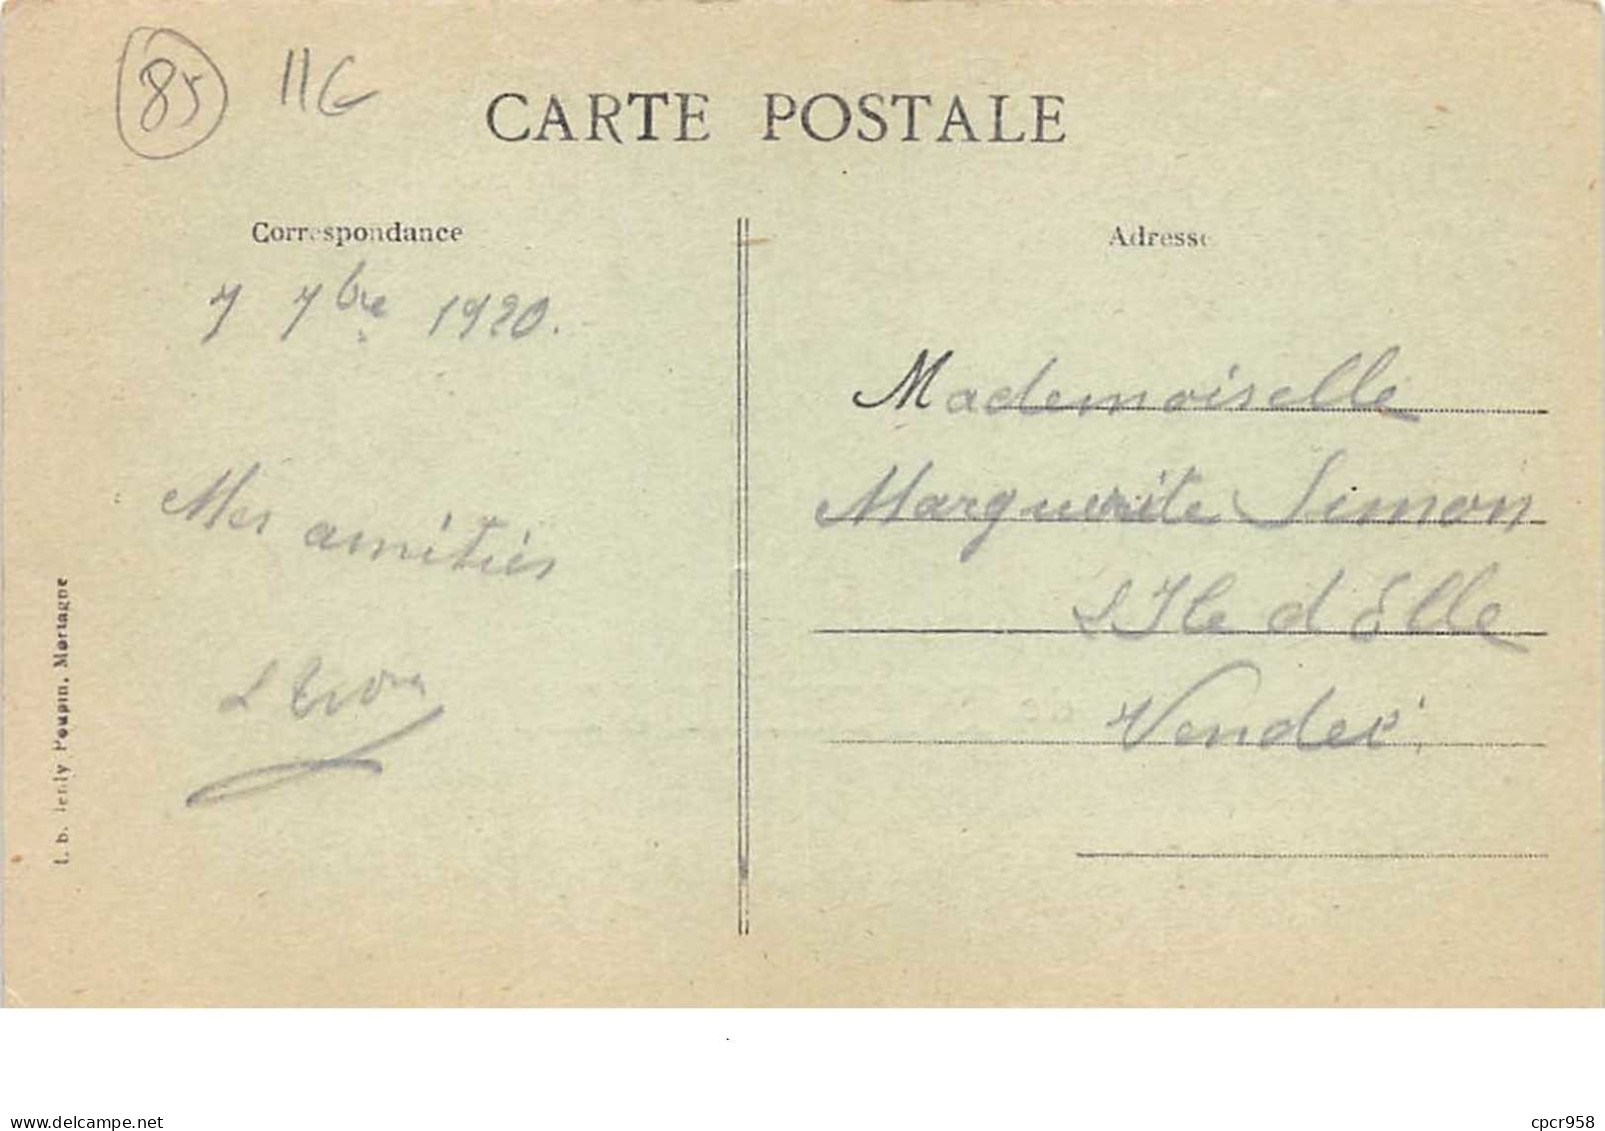 85 116
CARTE POSTALE
Correspondance
Adresse
7 7bre 1920.
Mes amitiés
Mademoiselle
Marguerite Simon
L Ile d Elle
Vendeé
Poupin, Mortagne
www.delcampe.net
cpcr958